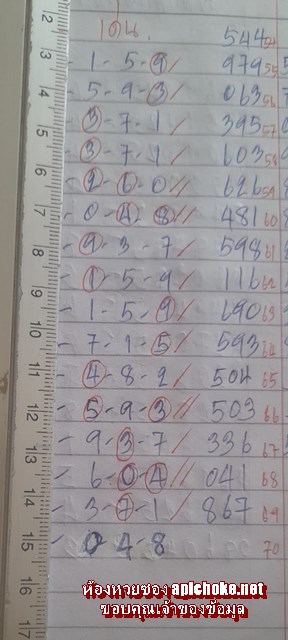 เด่น 544 54
- 1-5-9/ 979 55
- 5-9-3/ 063 56
- 3-7-1/ 395 57
- 3-7-1/ 603 58
- 2-6-0// 626 59
- 0-4-8// 481 60
- 9-3-7/ 598 61
- 1-5-9/ 116 62
- 1-5-9/ 690 63
- 7-1-5/ 593 64
- 4-8-2/ 504 65
- 5-9-3// 503 66
- 9-3-7/ 336 67
- 6-0-4// 041 68
- 3-7-1/ 867 69
- 0 4-8 70
2
3
4
5
6
7
8
9
10
11
12
13
14
15
16
ห้องหวยซอง apichoke.net
ขอบคุณเจ้าของข้อมูล